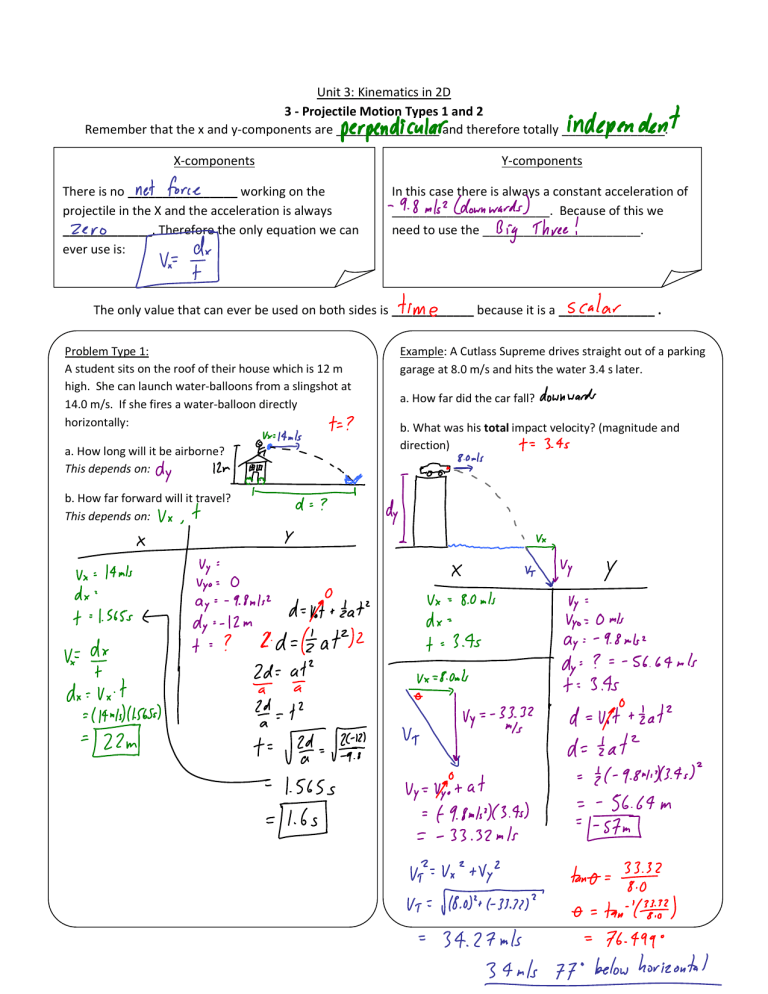 Unit 3: Kinematics in 2D
3 - Projectile Motion Types 1 and 2
Remember that the x and y-components are perpendicular and therefore totally independent.
X-components
There is no net force working on the
projectile in the X and the acceleration is always
zero. Therefore the only equation we can
ever use is:
Vx = dx/t
Y-components
In this case there is always a constant acceleration of
-9.8 m/s² (downwards). Because of this we
need to use the Big Three!.
The only value that can ever be used on both sides is time because it is a scalar.
Problem Type 1:
A student sits on the roof of their house which is 12 m
high. She can launch water-balloons from a slingshot at
14.0 m/s. If she fires a water-balloon directly
horizontally:
t=?
Vx=14m/s
a. How long will it be airborne?
This depends on: dy
12m
b. How far forward will it travel?
This depends on: Vx, t
d = ?
X
Y
Vx = 14 m/s
dx =
t = 1.565s
Vx = dx/t
dx = Vx·t
=(14m/s)(1.565s)
= 22m
Vy =
Vyo = 0
ay = -9.8m/s²
dy = -12m
t = ?
0
d = V₀t + ½at²
2·d = (½at²)2
2d = at²
a a
2d/a = t²
t = √(2d/a) = √(2(-12)/-9.8)
= 1.565s
= 1.6s
Example: A Cutlass Supreme drives straight out of a parking
garage at 8.0 m/s and hits the water 3.4 s later.
a. How far did the car fall? downwards
b. What was his total impact velocity? (magnitude and
direction) t = 3.4s
8.0m/s
dy
Vx
VT
Vy
X
Y
Vx = 8.0 m/s
dx =
t = 3.4s
Vy =
Vyo = 0 m/s
ay = -9.8 m/s²
dy = ? = -56.64 m/s
t = 3.4s
Vx=8.0m/s
θ
VT
Vy = -33.32 m/s
0
Vy = Vyo + at
= (-9.8m/s²)(3.4s)
= -33.32 m/s
0
d = V₀t + ½at²
d = ½at²
= ½(-9.8m/s²)(3.4s)²
= -56.64 m
= -57m
VT² = Vx² + Vy²
VT = √(8.0)² + (-33.32)²
= 34.27m/s
tanθ = 33.32/8.0
θ = tan⁻¹(33.32/8.0)
= 76.499°
34m/s 77° below horizontal